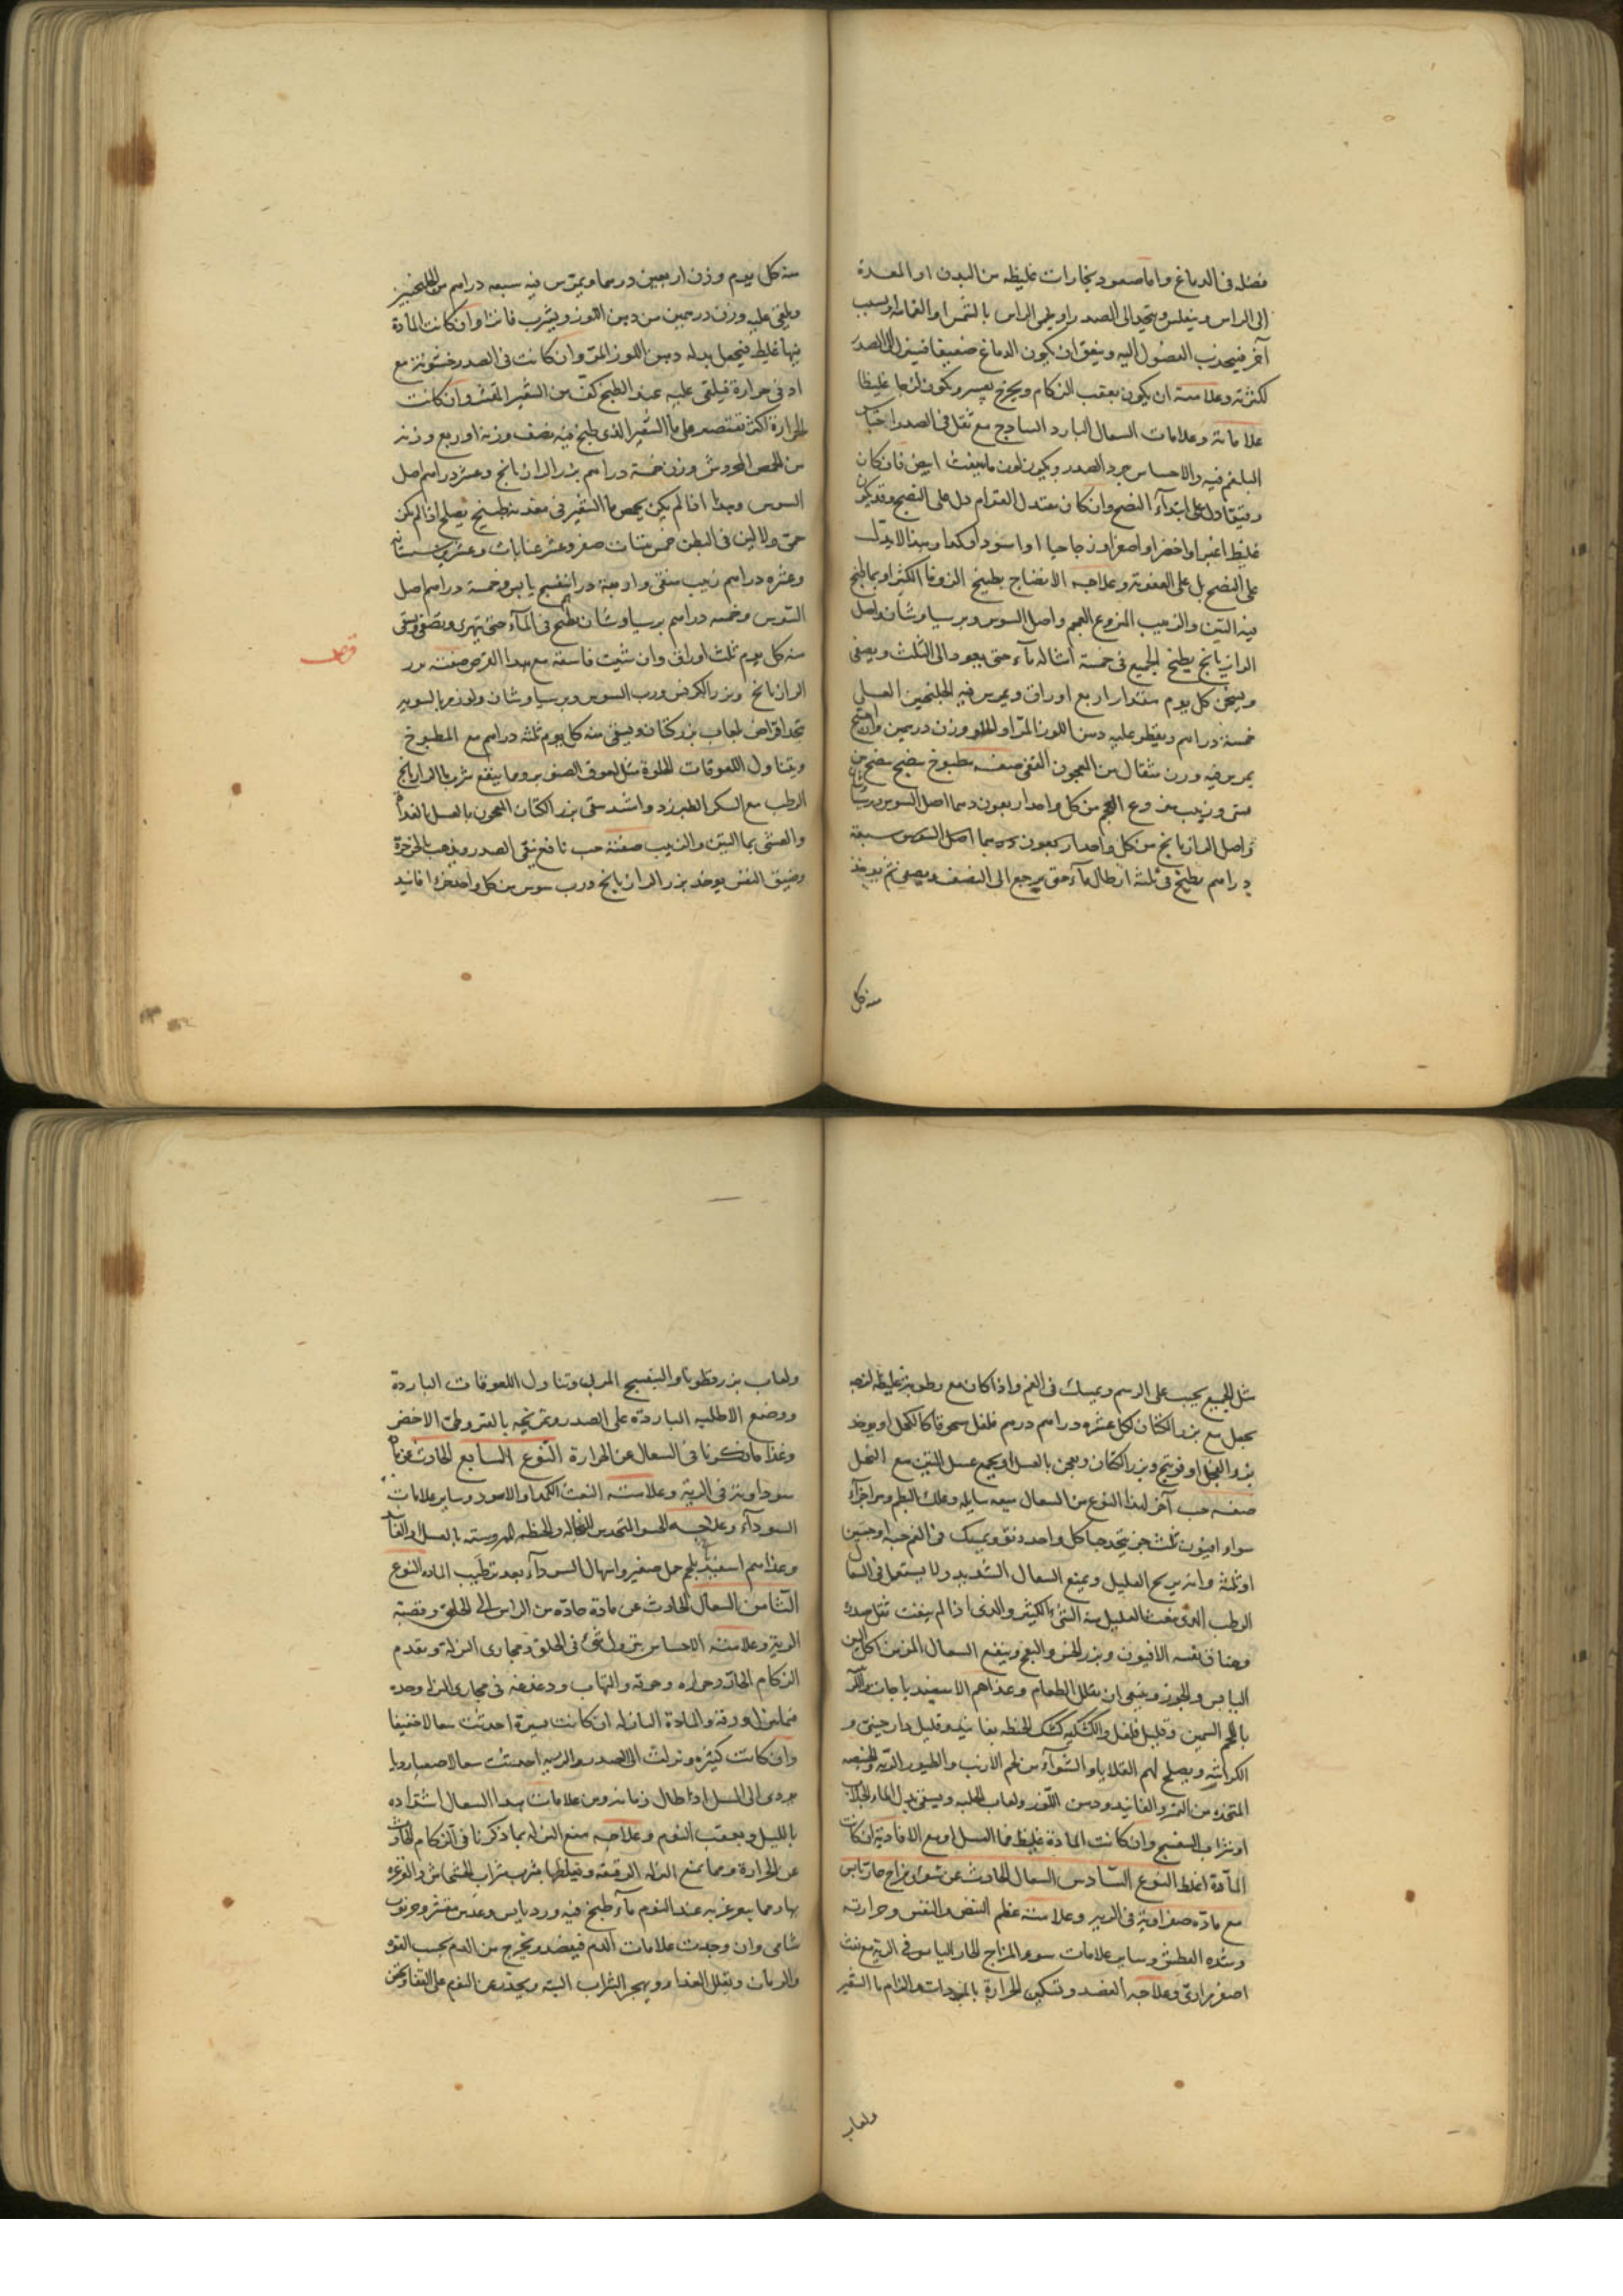 فضله فى الدماغ واما صعود بخارات غليظه من البدن او المعدة
الى الراس وينعكس ويتجلى الى الصدر او على الراس بالشمس او
آخر فيجذب الفضول اليه ويتفق ان يكون الدماغ ضعيفا فينزل الى الصدر
لكثرته وعلامته ان يكون بعقب الزكام ويخرج بعسر ويكون غليظا
علاماته وعلامات السعال البارد الساذج مع ثقل فى الصدر
البلغم فيه والاحساس ببرد الصدر ويكون لون ما ينفث ابيض فان كان
رقيقا دل على ابتدآء النضج وان كان معتدل القوام دل على النضج وقد يكون
غليظ اغبر او اخضر او اصفر او زجاجيا او اسود او كمدا وهذا لا يدل
على النضج بل على العفونة وعلاجه الانضاج بطبيخ الزوفا الكثير او بما طبخ
فيه التين والزبيب المنزوع العجم واصل السوس وبرسياوشان واصل
الرازيانج يطبخ الجميع فى خمسة امثاله مآء حتى يعود الى الثلث ويصفى
ويسخن كل يوم مقدار اربع اواق ويمرس فيه الجلنجبين العسلى
خمسة دراهم ويقطر عليه دهن اللوز المر او الحلو وزن درهمين
يمرس فيه وزن مثقال من المعجون صفة مطبوخ ينضج
وزبيب منزوع العجم من كل واحد اربعون درهما اصل السوس
واصل الرازيانج من كل واحد اربعون درهما اصل السوس سبعة
دراهم يطبخ فى ثلثة ارطال مآء حتى يرجع الى النصف ويصفى ثم يوخذ
منه كل
منه كل يوم وزن اربعين درهما ويمرس فيه سبعه دراهم من الجلنجبين
ويلقى عليه وزن درهمين من دهن اللوز ويشرب فاترا وان كانت المادة
فيها غليظ فيجعل بدله دهن اللوز المر وان كانت فى الصدر خشونة مع
ادنى حرارة فيلقى عليه عند الطبخ كف من الشعير المقشر وان كانت
الحرارة اكثر تقتصر على مآ الشعير الذى طبخ فيه نصف وزنه او ربع وزنه
من الحمص المجروش وزن خمسة دراهم بزر الرازيانج وعشرة دراهم اصل
السوس وهذا اذا لم يكن يحمض مآ الشعير فى معدته طبيخ يصلح اذا لم يكن
حمى ولا لين فى البطن خمس تينات صفر وعشر عنابات وعشرين سبستانه
وعشره دراهم زبيب منقى واربعة دراهم بنفسج يابس وخمسة دراهم اصل
السوس وخمسه دراهم برسياوشان يطبخ فى المآء حتى يتهرى ويصفى ويسقى
منه كل يوم ثلث اواق وان شئت فاسقه مع هذا القرص صفته بزر
قرص
الرازيانج وبزر الكرفس ورب السوس وبرسياوشان ولوز مر بالسويه
يتخذ اقراص بلعاب بزر كتان ويسقى منه كل يوم ثلثه دراهم مع المطبوخ
ويتناول اللعوقات الحلوة مثل لعوق الصنوبر ومما ينفع شرب مآ الرازيانج
الرطب مع السكر الطبرزد واشده سقى بزر الكتان المعجون بالعسل بالغداة
والعشى بمآ التين والزبيب صفة حب نافع ينقى الصدر ويذهب بالخرخرة
وضيق النفس يوخذ بزر الرازيانج ورب سوس من كل واحد جزء فانيد
مثل الجميع يحبب على الرسم ويمسك فى الفم واذا كان مع رطوبة غليظة لزجه
يجعل مع بزر الكتان لكل عشره دراهم درهم فلفل مسحوقا كالكحل او يوخذ
بزر الفجل او فوتنج وبزر الكتان ويعجن بالعسل او يجمع عسل التين مع النحل
صفة حب آخر لهذا النوع من السعال ميعه سايله وعلك البطم ومر اجزاء
سوا وافيون ثلث جزء يتخذ حبا كل واحد دانق ويمسك فى الفم حبه او حبتين
او ثلثة وانه يريح العليل ويمنع السعال الشديد ولا يستعمل فى السعال
الرطب الذى ينفث العليل منه الشئ الكثير والذى اذا لم ينفث ثقل صدره
وضاق نفسه الافيون وبزر الخس والبنج وينفع السعال المزمن اكل التين
اليابس والجوز وينبغى ان يقلل الطعام وغذاهم الاسفيدباجات
باللحم السمين وقليل فلفل والكشكيه كشك الحنطه بفانيد وقليل دارچينى و
الكراثيه ويصلح لهم القلايا والشوآء من لحم الارنب والطيور
المتخذه من التمر والفانيد ودهن اللوز ولعاب الحلبه ويسقى بدل المآء الجلاب
او شراب البنفسج وان كانت المادة غليظه فمآ العسل او مع الافاويه ان كانت
المآدة اغلظ النوع السادس السعال الحادث عن سوء مزاج حار يابس
مع مادة صفراوية فى الريه وعلامته عظم النبض والنفس وحرارته
وشده العطش وساير علامات سوء المزاج الحار اليابس فى الرية مع نفث
اصفر مرارى وعلاجه الفصد وتسكين الحرارة بالمبردات والزام مآ الشعير
ولعاب
ولعاب بزر قطونا والبنفسج المربى وتناول اللعوقات البارده
ووضع الاطليه الباردة على الصدر وتمريخه بالقيروطى الاخضر
وغذا ما ذكرنا فى السعال عن الحرارة النوع السابع الحادث عن مادة
سوداوية فى الرية وعلامته النفث الكمد او الاسود وساير علامات
السودآء وعلاجه الحسو المتخذ من النخاله والحنطه المهروسه بالعسل
وغذاهم اسفيدباج بلحم حمل صغير واسهال السودآء بعد ترطيب الماده النوع
الثامن السعال الحادث عن مادة حادة من الراس الى الحلق وقصبة
الرية وعلامته الاحساس بنزول شئ فى الحلق ومجارى النزلة وتقدم
الزكام الحاد وحراره وحرقه والتهاب ودغدغه فى مجارى النزلة وحدة
فيما ينزل ورقة والمادة النازله ان كانت يسيرة احدثت سعالا خفيفا
وان كانت كثيره ونزلت الى الصدر والريه احدثت سعالا صعبا رديا
يودى الى السل اذا طال زمانه ومن علامات هذا السعال اشتداده
بالليل وبعقب النوم وعلاجه منع النزله بما ذكرنا فى الزكام الحادث
عن الحرارة ومما يمنع النزله الرقيقه ويغلظها شرب شراب الخشخاش والغرغره
بها ومما يتغرغر به عند النوم مآء طبخ فيه ورد يابس وعدس مقشر وخرنوب
شامى وان وجدت علامات الدم فيفصد ويخرج من الدم بحسب القوة
والزمان ويقلل الغذا ويهجر الشراب البته ويحذر من النوم على القفا